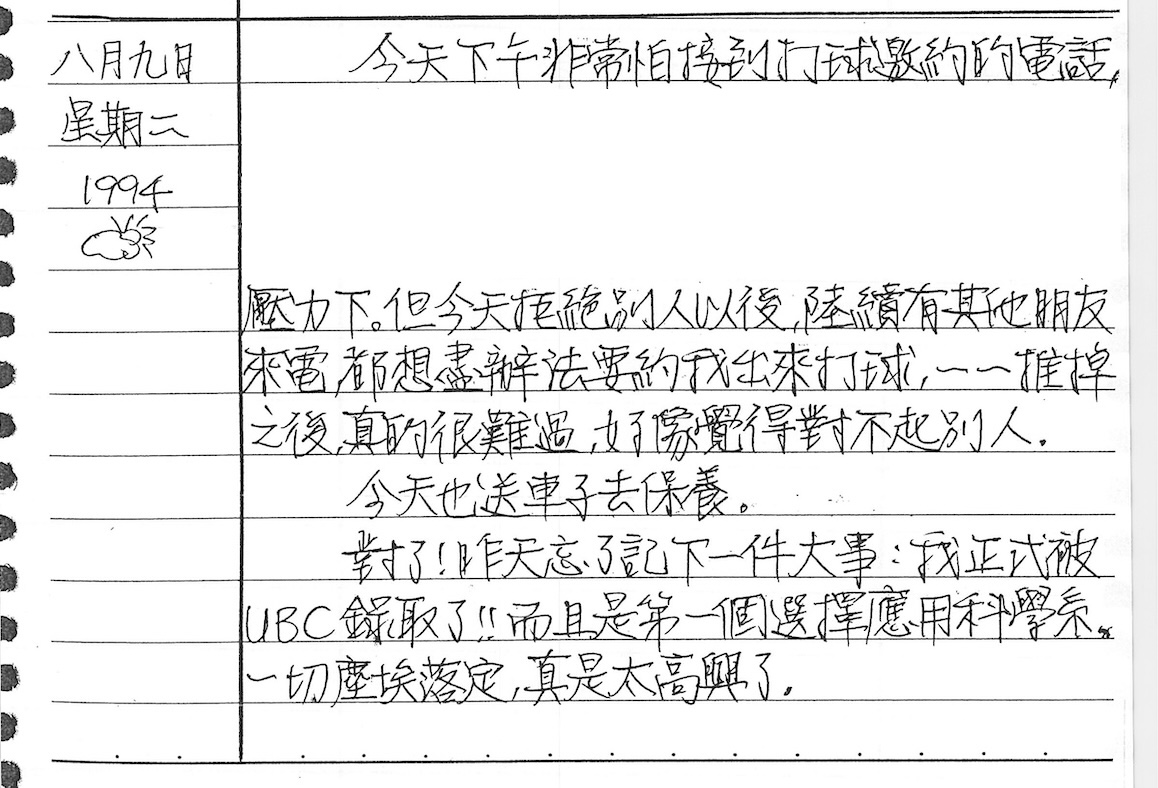 八月九日
星期二
1994
今天下午非常怕接到打球邀約的電話,
壓力下。但今天拒絕別人以後,陸續有其他朋友
來電,都想盡辦法要約我出來打球,一一推掉
之後,真的很難過,好像覺得對不起別人.
今天也送車子去保養。
對了!昨天忘了記下一件大事:我正式被
UBC錄取了!!而且是第一個選擇應用科學系.
一切塵埃落定,真是太高興了.